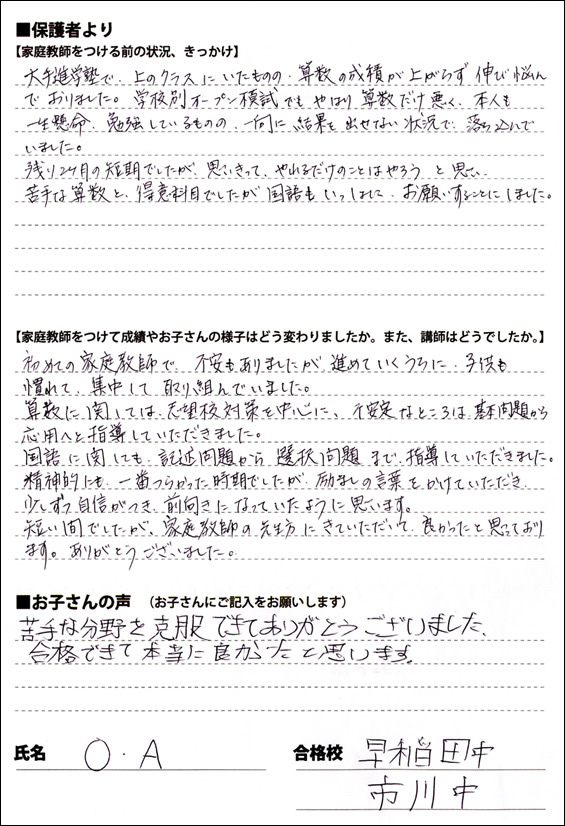 ■保護者より
【家庭教師をつける前の状況、きっかけ】
大手進学塾で、上のクラスにいたものの、算数の成績が上がらず伸び悩ん
でおりました。学校別オープン模試でもやはり算数だけ悪く、本人も
一生懸命、勉強しているものの、一向に結果を出せない状況で、落ち込んで
いました。
残り2ヶ月の短期でしたが、思いきって、やれるだけのことはやろうと思い、
苦手な算数と、得意科目でしたが国語もいっしょに、お願いすることにしました。
【家庭教師をつけて成績やお子さんの様子はどう変わりましたか。また、講師はどうでしたか。】
初めての家庭教師で、不安もありましたが進めていくうちに、子供も
慣れて、集中して取り組んでいました。
算数に関しては、志望校対策を中心に、不安定なところは、基本問題から
応用へと指導していただきました。
国語に関しても、記述問題から選択問題まで、指導していただきました。
精神的にも、一番つらかった時期でしたが、励ましの言葉をかけていただき、
少しずつ自信がつき、前向きになっていたように思います。
短い間でしたが、家庭教師の先生方にきていただいて、良かったと思っており
ます。ありがとうございました。
■お子さんの声 (お子さんにご記入をお願いします)
苦手な分野を克服できてありがとうございました、
合格できて本当に良かったと思います。
氏名 O.A 合格校 早稲田中
市川中